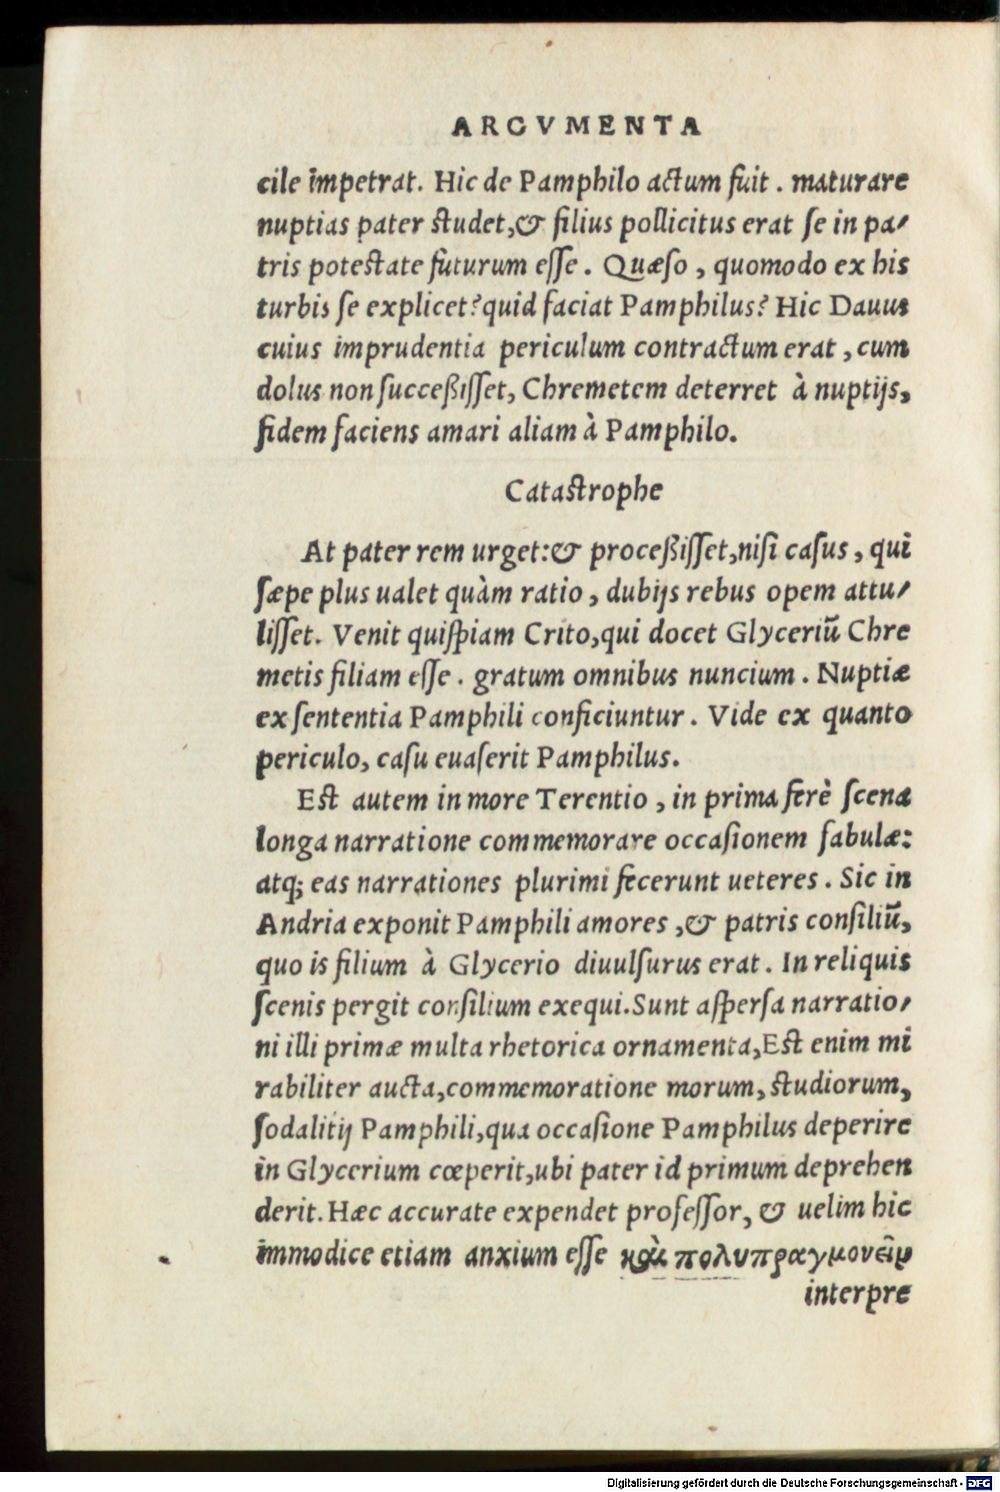 ARGVMENTA
cile īmpetrat. Hic de Pamphilo actum fuit. maturare
nuptias pater studet,& filius pollicitus erat se in pa-
tris potestate futurum esse. Quæso, quomodo ex his
turbis se explicet? quid faciat Pamphilus? Hic Dauus
cuius imprudentia periculum contractum erat, cum
dolus non successisset, Chremetem deterret à nuptijs,
fidem faciens amari aliam à Pamphilo.
Catastrophe
At pater rem urget:& processisset,nisi casus, qui
sæpe plus ualet quàm ratio, dubijs rebus opem attu-
lisset. Venit quispiam Crito,qui docet Glyceriū Chre
metis filiam esse. gratum omnibus nuncium. Nuptiæ
ex sententia Pamphili conficiuntur. Vide ex quanto
periculo, casu euaserit Pamphilus.
Est autem in more Terentio, in prima ferè scena
longa narratione commemorare occasionem fabulæ:
atq; eas narrationes plurimi fecerunt ueteres. Sic in
Andria exponit Pamphili amores,& patris consiliū,
quo is filium à Glycerio diuulsurus erat. In reliquis
scenis pergit consilium exequi.Sunt aspersa narratio-
ni illi primæ multa rhetorica ornamenta,Est enim mi
rabiliter aucta,commemoratione morum, studiorum,
sodalitij Pamphili,qua occasione Pamphilus deperire
in Glycerium cœperit,ubi pater id primum deprehen
derit. Hæc accurate expendet professor, & uelim hic
immodice etiam anxium esse καὶ πολυπραγμονεῖν
interpre
Digitalisierung gefördert durch die Deutsche Forschungsgemeinschaft - DFG